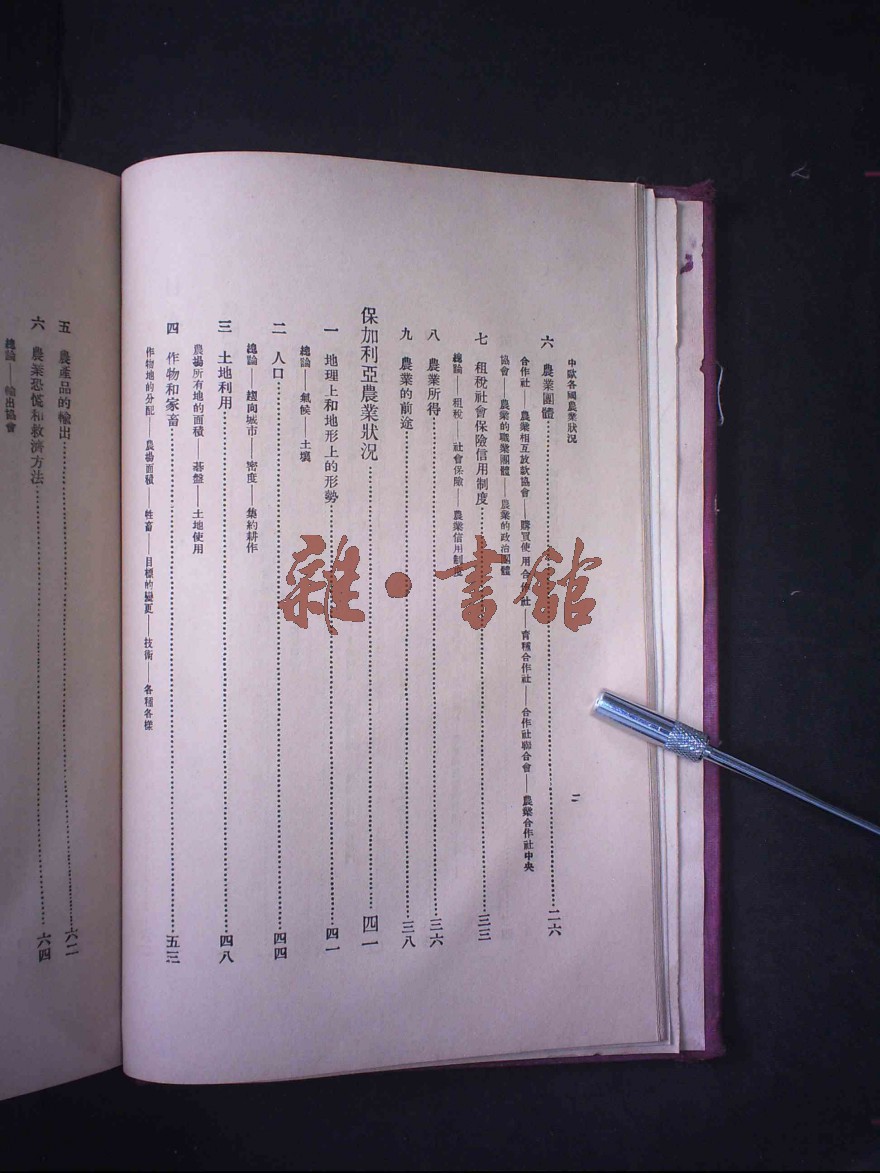 中歐各國農業狀況
二
六 農業團體……二六
合作社——農業相互放款協會——購買使用合作社——育種合作社——合作社聯合會——農業合作社中央
協會——農業的職業團體——農業的政治團體
七 租稅社會保險信用制度……三三
總論——租稅——社會保險——農業信用制度
八 農業所得……三六
九 農業的前途……三八
保加利亞農業狀況……四一
一 地理上和地形上的形勢……四一
總論——氣候——土壤
二 人口……四四
總論——趨向城市——密度——集約耕作
三 土地利用……四八
農場所有地的面積——碁盤——土地使用
四 作物和家畜……五三
作物地的分配——農場面積——牲畜——目標的變更——技術——各種各樣
五 農產品的輸出……六二
六 農業恐慌和救濟方法……六四
總論——輸出協會
雜·書館